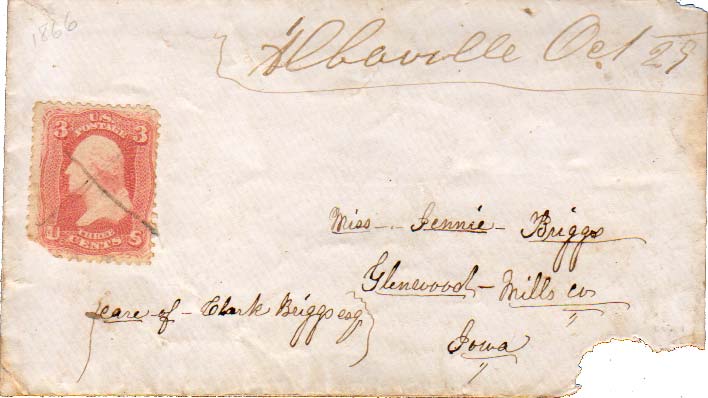 1866
Albaville Oct 29
3 U.S. 3
POSTAGE
THREE
U CENTS S
Miss - Jennie - Briggs
Glenwood - Mills co
care of - Clark Briggs esq
Iowa